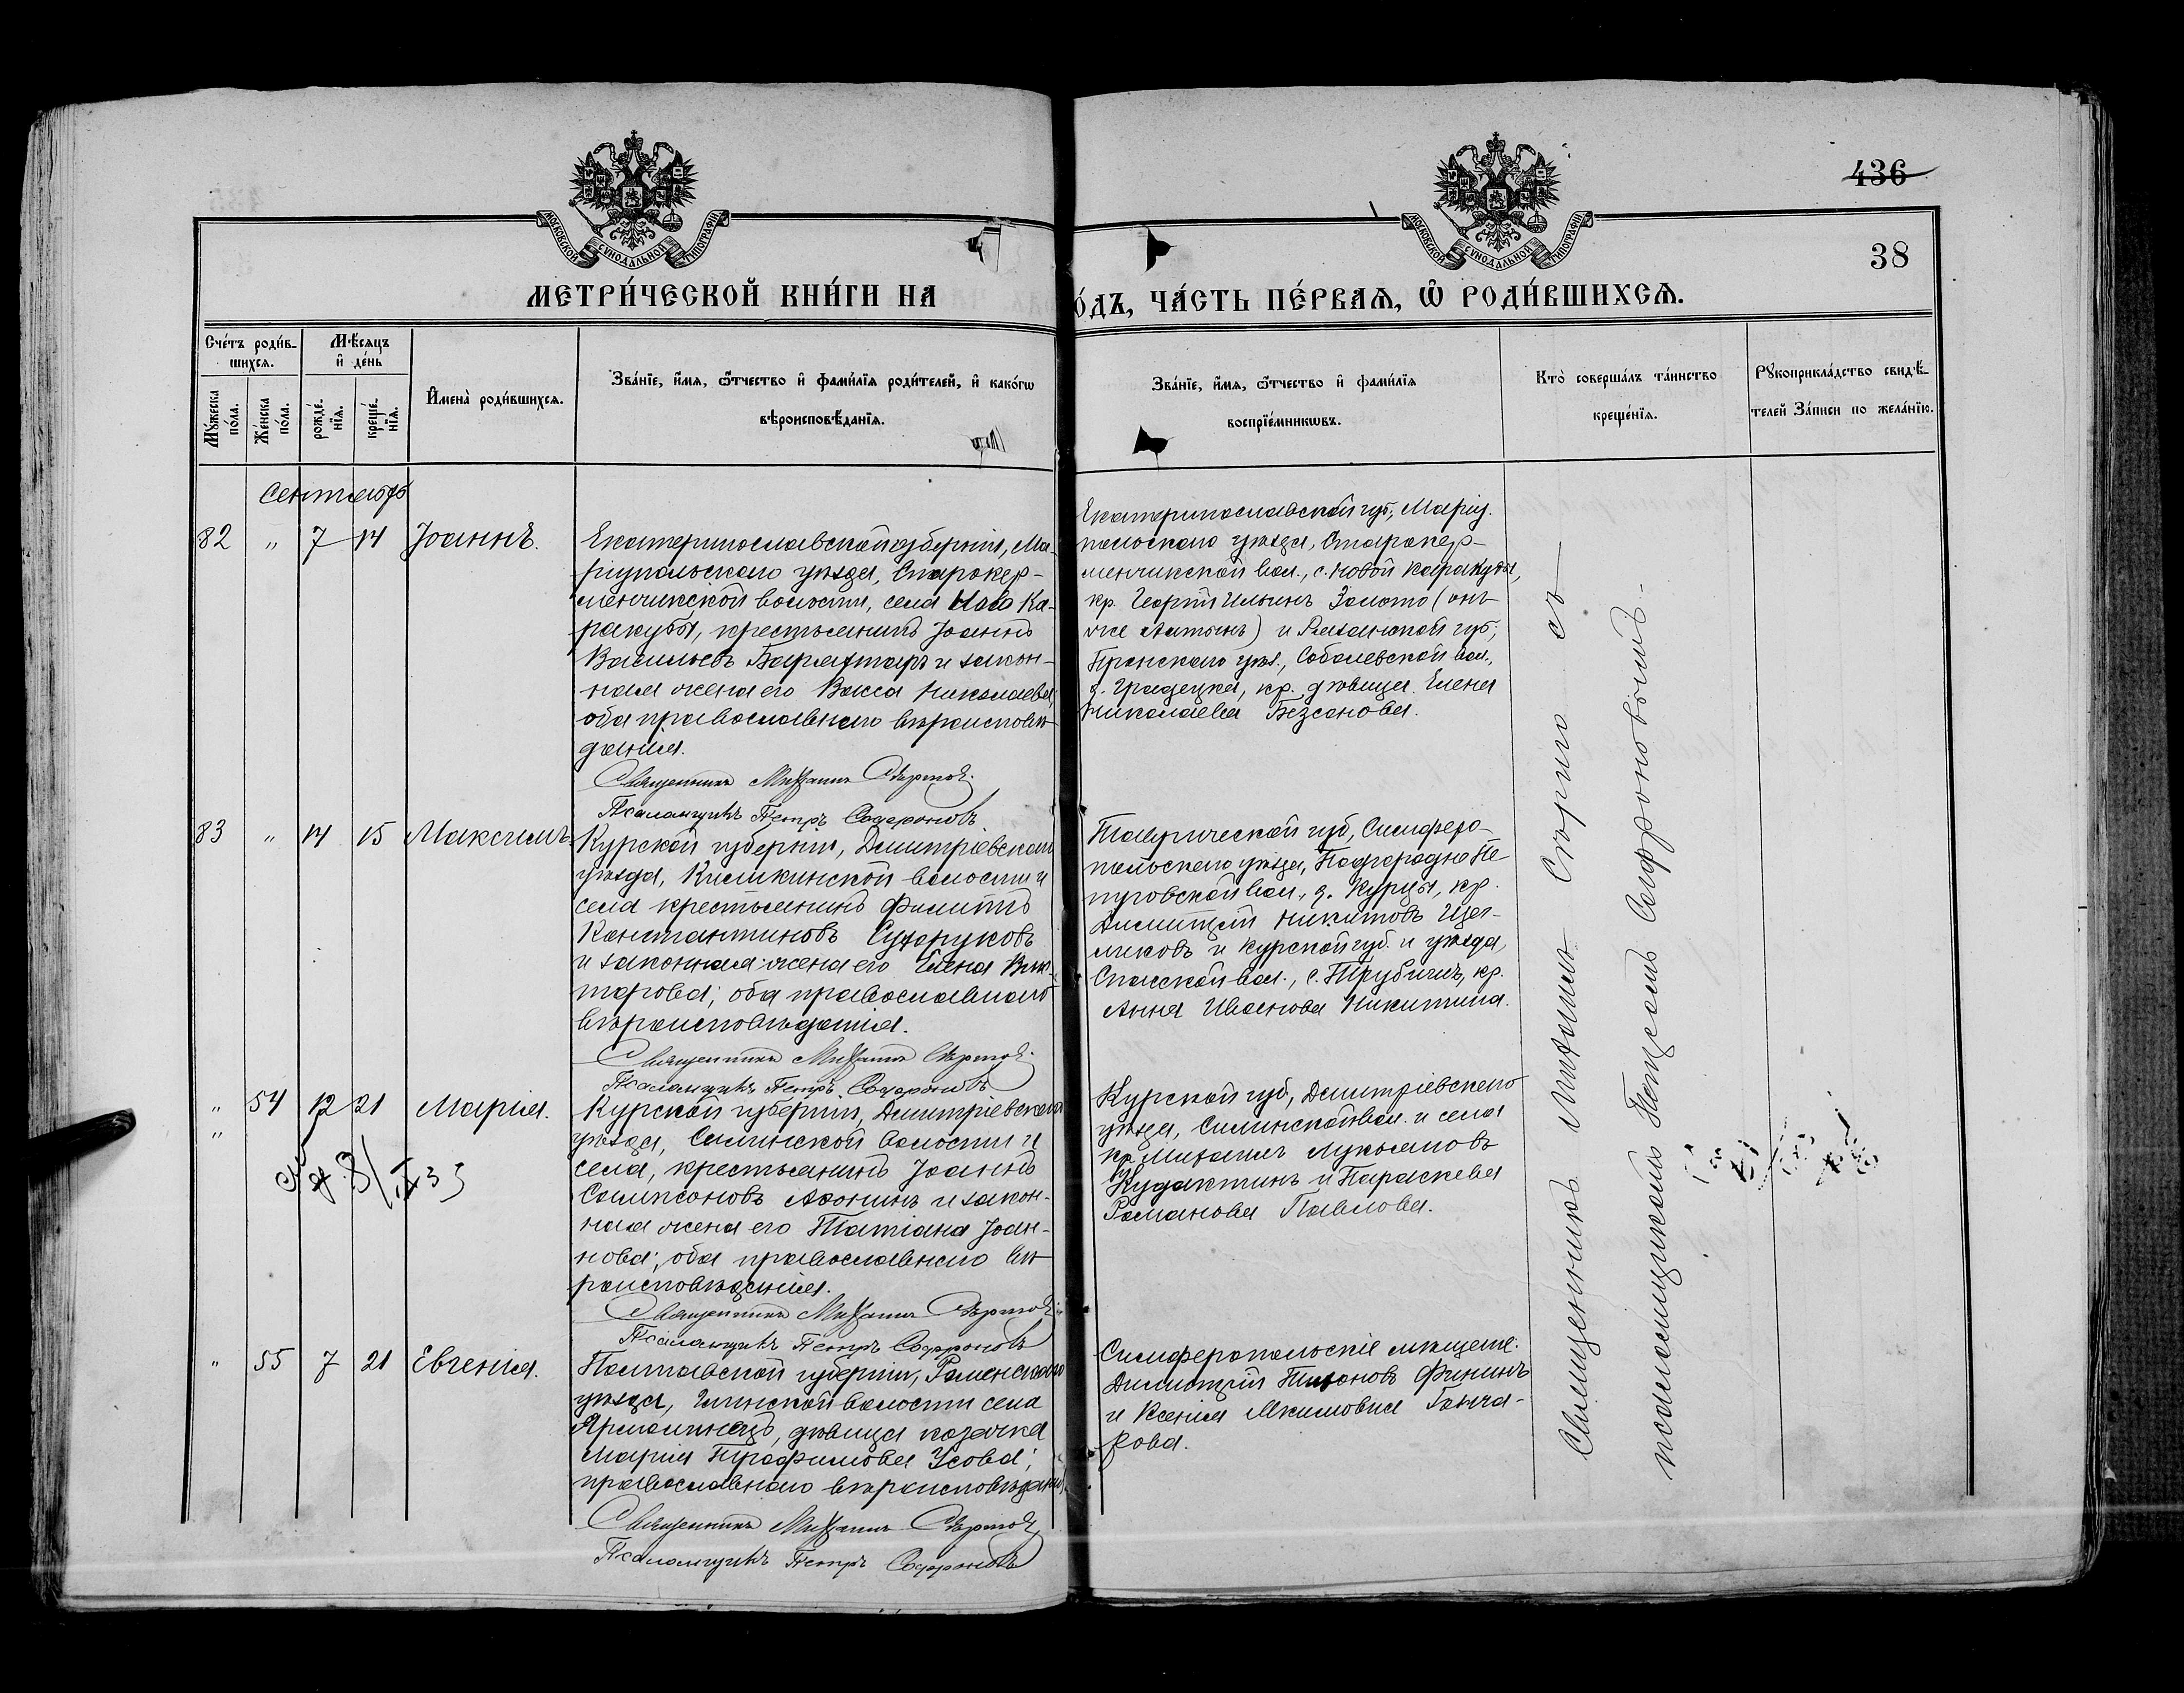 436
38
МОСКОВСКОЙ СѴНОДАЛЬНОЙ ТИПОГРАФІИ
МОСКОВСКОЙ СѴНОДАЛЬНОЙ ТИПОГРАФІИ
МЕТРИ́ЧЕСКОЙ КНИ́ГИ НА
О́ДЪ, ЧА́СТЬ ПЕ́РВАѦ, Ѡ҆ РОДИ́ВШИХСѦ.
Сче́тъ роди́в-
шихсѧ.
Мꙋ́жеска по́ла.
Же́нска по́ла.
Мѣ́сѧцъ и҆ де́нь
рожде́-нїѧ.
креще́-нїѧ.
И҆мена̀ роди́вшихсѧ.
Зва́нїе, и҆́мѧ, ѻ҆́тчество и҆ фами́лїѧ роди́телей, и҆ како́гѡ
вѣроисповѣ́данїѧ.
Зва́нїе, и҆́мѧ, ѻ҆́тчество и҆ фами́лїѧ
воспрїе́мникѡвъ.
Кто̀ соверша́лъ та́инство
креще́нїѧ.
Рꙋкоприкла́дство свидѣ́-
телей за́писи по жела́нїю.
Сентябрь
82 " 7 14 Іоаннъ.
Екатеринославской губерніи, Ма-
ріупольскаго уѣзда, Старокер-
менчикской волости, села Ново Ка-
ракубы, крестьянинъ Іоаннъ
Васильевъ Барахтаръ и закон-
ная жена его Васса Николаева,
оба православнаго вѣроисповѣ-
данія.
Священникъ Михаилъ
Псаломщикъ Петръ Софроновъ
Екатеринославской губ., Маріу-
польскаго уѣзда, Старокер-
менчикской вол., с. Новой Каракубы,
кр. Георгій Ильинъ Золото (онъ
же) и Рязанской губ.,
Пронскаго уѣз., Соболевской вол.,
д. кр. дѣвица Елена
Николаева Безсонова.
83 " 14 15 Максимъ.
Курской губерніи, Димитріевскаго
уѣзда, волости и
села крестьянинъ Филиппъ
Константиновъ Сухоруковъ
и законная жена его Елена Вик-
торова; оба православнаго
вѣроисповѣданія.
Священникъ Михаилъ
Псаломщикъ Петръ Софроновъ
Таврической губ., Симферо-
польскаго уѣзда, Подгородне Пе-
тровской вол., д. Курцы, кр.
Димитрій Никитовъ
и Курской губ. и уѣзда,
Спасской вол., с. кр.
Анна Иванова Никитина.
" 54 12 21 Марія.
Курской губерніи, Димитріевскаго
уѣзда, Селинской волости и
села, крестьянинъ Іоаннъ
Сампсоновъ Аѳонинъ и закон-
ная жена его Татіана Іоан-
нова; оба православнаго вѣ-
роисповѣданія.
Священникъ Михаилъ
Псаломщикъ Петръ Софроновъ
Курской губ., Димитріевскаго
уѣзда, Селинской вол. и села
кр. Михаилъ Лукьяновъ
и Параскева
Романова Павлова.
" 55 7 21 Евгенія.
Полтавской губерніи, Роменскаго
уѣзда, Глинской волости села
дѣвица козачка
Марія Трофимова Усова;
православнаго вѣроисповѣданія.
Священникъ Михаилъ
Псаломщикъ Петръ Софроновъ
Симферопольскіе мѣщане:
Димитрій Тихоновъ Фининъ
и Ксенія Акимовна Гонча-
рова.
Священникъ Михаилъ съ
псаломщикомъ Петромъ Софроновымъ.